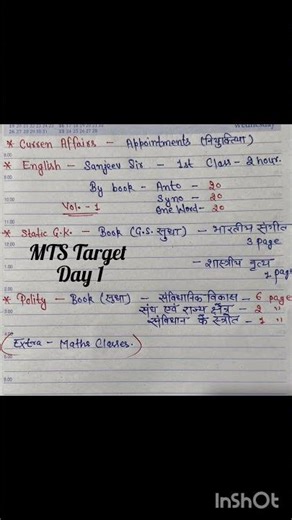 * Curren Affairs - Appointments (नियुक्तियाँ)
* English - Sanjeev Sir - 1st Class - 2 hour.
By book - Anto - 20
Vol. - 1 Syno - 20
One Word - 20
* Static G.K. - Book (G.S. सुधा) - भारतीय संगीत
3 page
MTS Target
Day 1
- शास्त्रीय नृत्य
* Polity - Book (सुधा) - संविधानिक विकास - 6 page
संघ एवं राज्य क्षेत्र - 2 "
संविधान के स्त्रोत - 1 "
Extra - Maths Classes.
InShOt